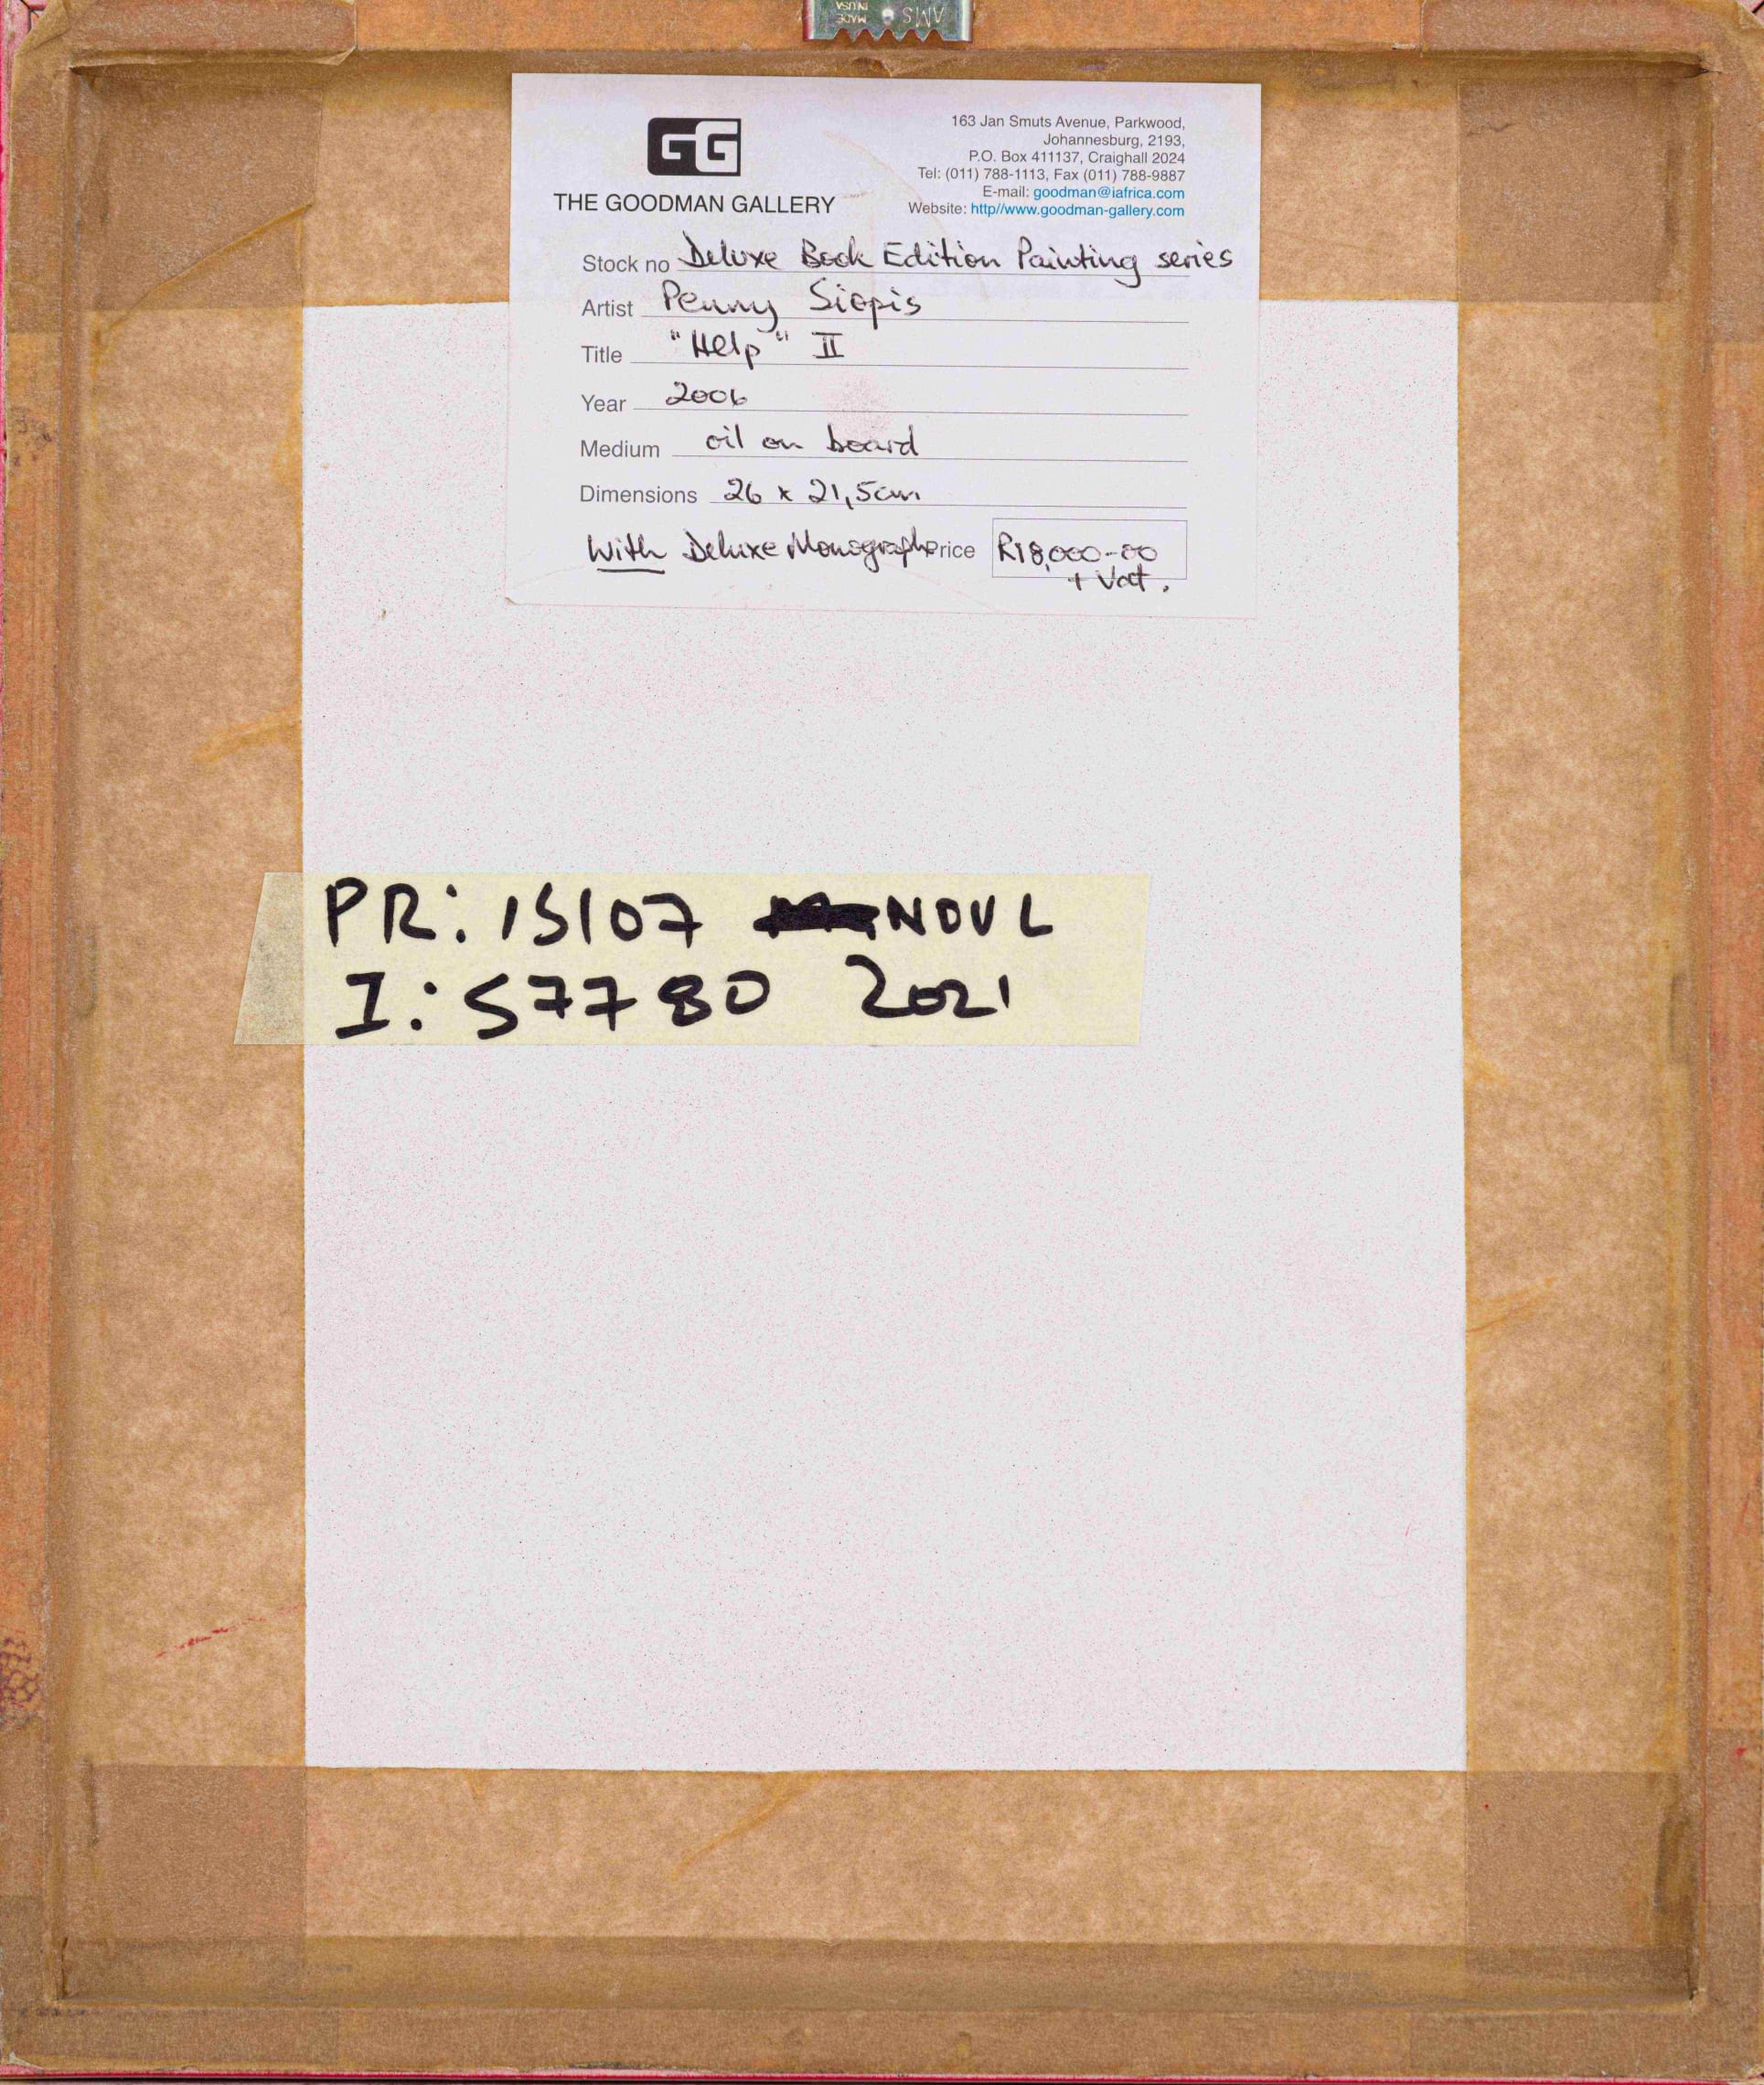 AMS
MADE
IN USA
GG
THE GOODMAN GALLERY
163 Jan Smuts Avenue, Parkwood,
Johannesburg, 2193,
P.O. Box 411137, Craighall 2024
Tel: (011) 788-1113, Fax (011) 788-9887
E-mail: goodman@iafrica.com
Website: http//www.goodman-gallery.com
Stock no Deluxe Book Edition Painting series
Artist Penny Siopis
Title "Help" II
Year 2006
Medium oil on board
Dimensions 26 x 21,5cm
With Deluxe Monograph Price R18,000-00
+ Vat.
PR: 15107 NOVL
I: 57780 2021